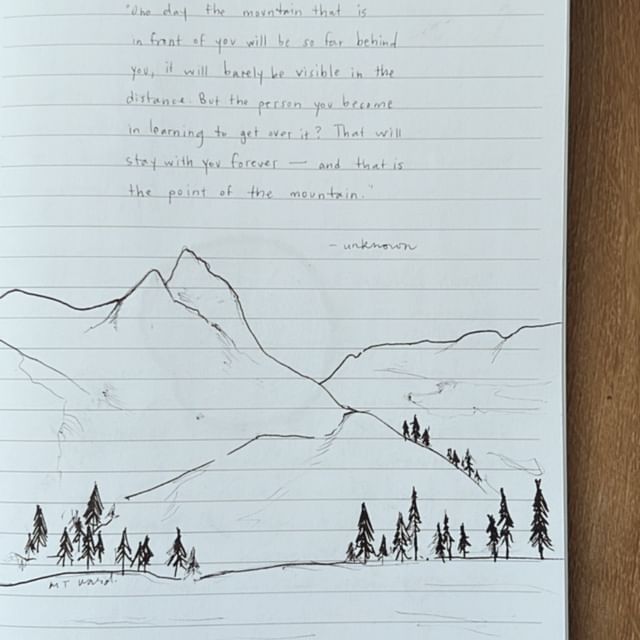 "One day the mountain that is
in front of you will be so far behind
you, it will barely be visible in the
distance. But the person you become
in learning to get over it? That will
stay with you forever — and that is
the point of the mountain."
- unknown
MT